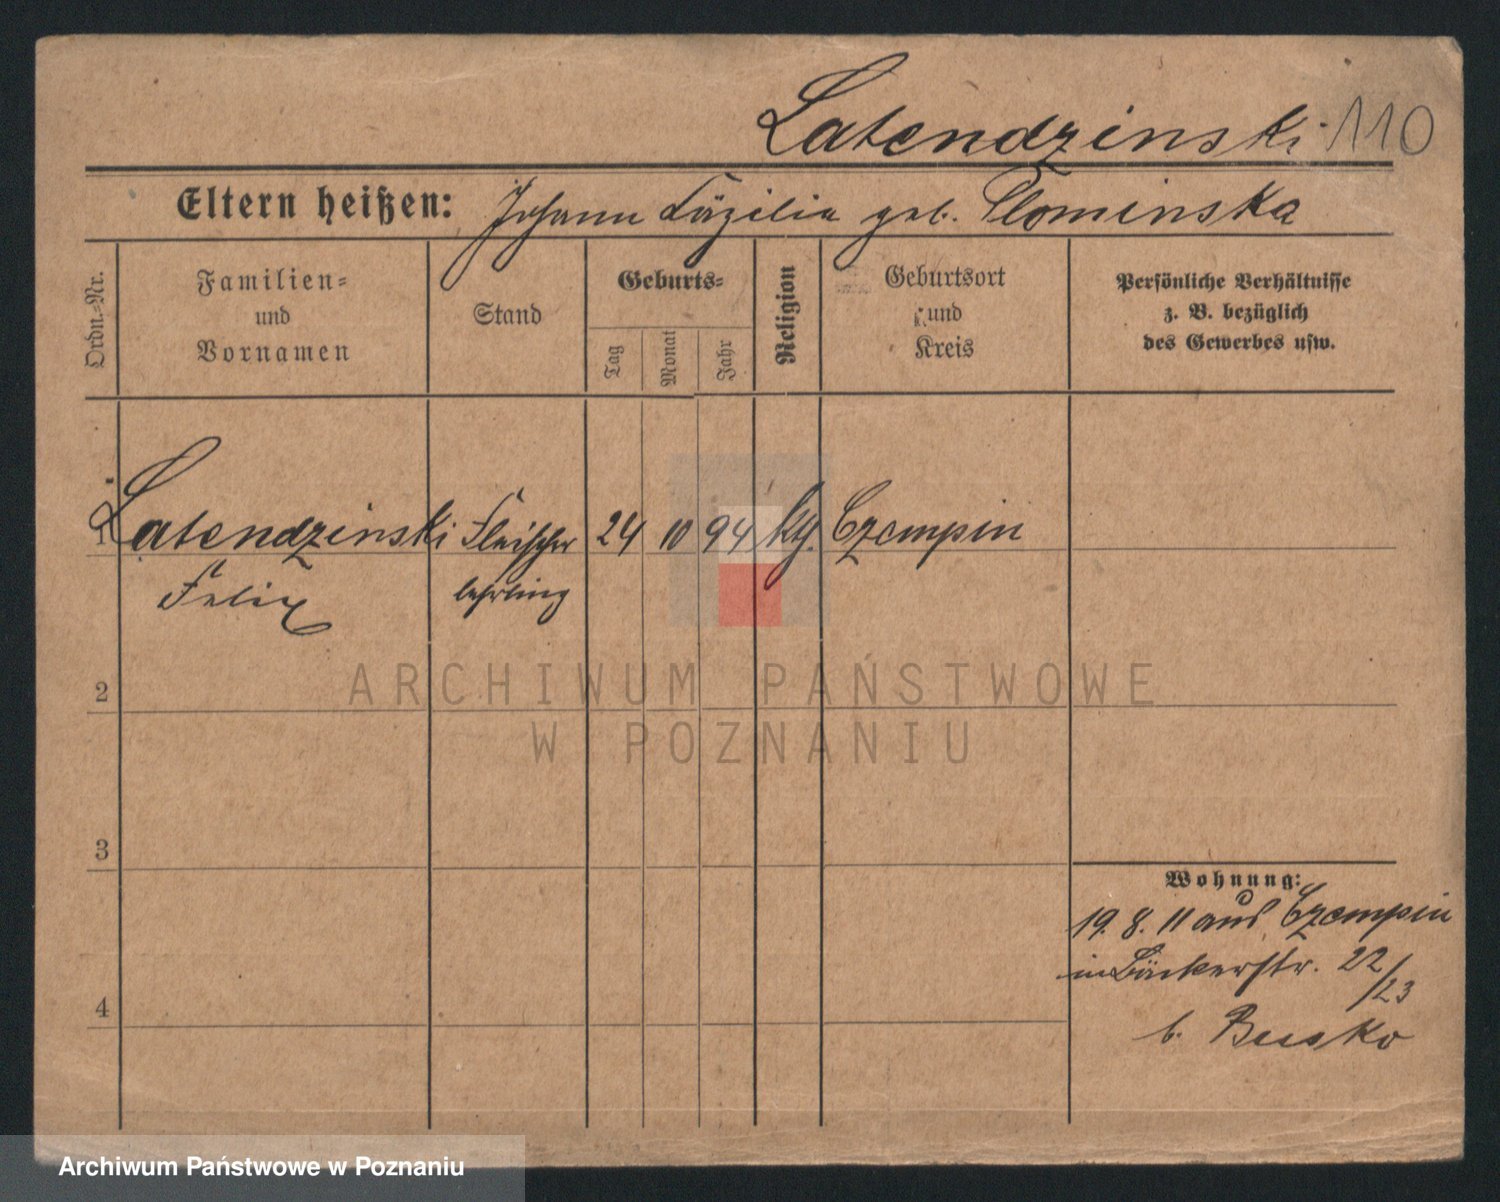 Latendzinski 110
Eltern heißen: Johann Cäzilia geb. Slominska
Ordn.-Nr.
Familien-
und
Vornamen
Stand
Geburts-
Tag
Monat
Jahr
Religion
Geburtsort
und
Kreis
Persönliche Verhältnisse
z. B. bezüglich
des Gewerbes usw.
1 Latendzinski Fleischer 24 10 94 kth. Czempin
Felix lehrling
2
3
4
Wohnung:
19. 8. 11 aus Czempin
in Bäckerstr. 22/23
b. Busko
ARCHIWUM PAŃSTWOWE
W POZNANIU
Archiwum Państwowe w Poznaniu